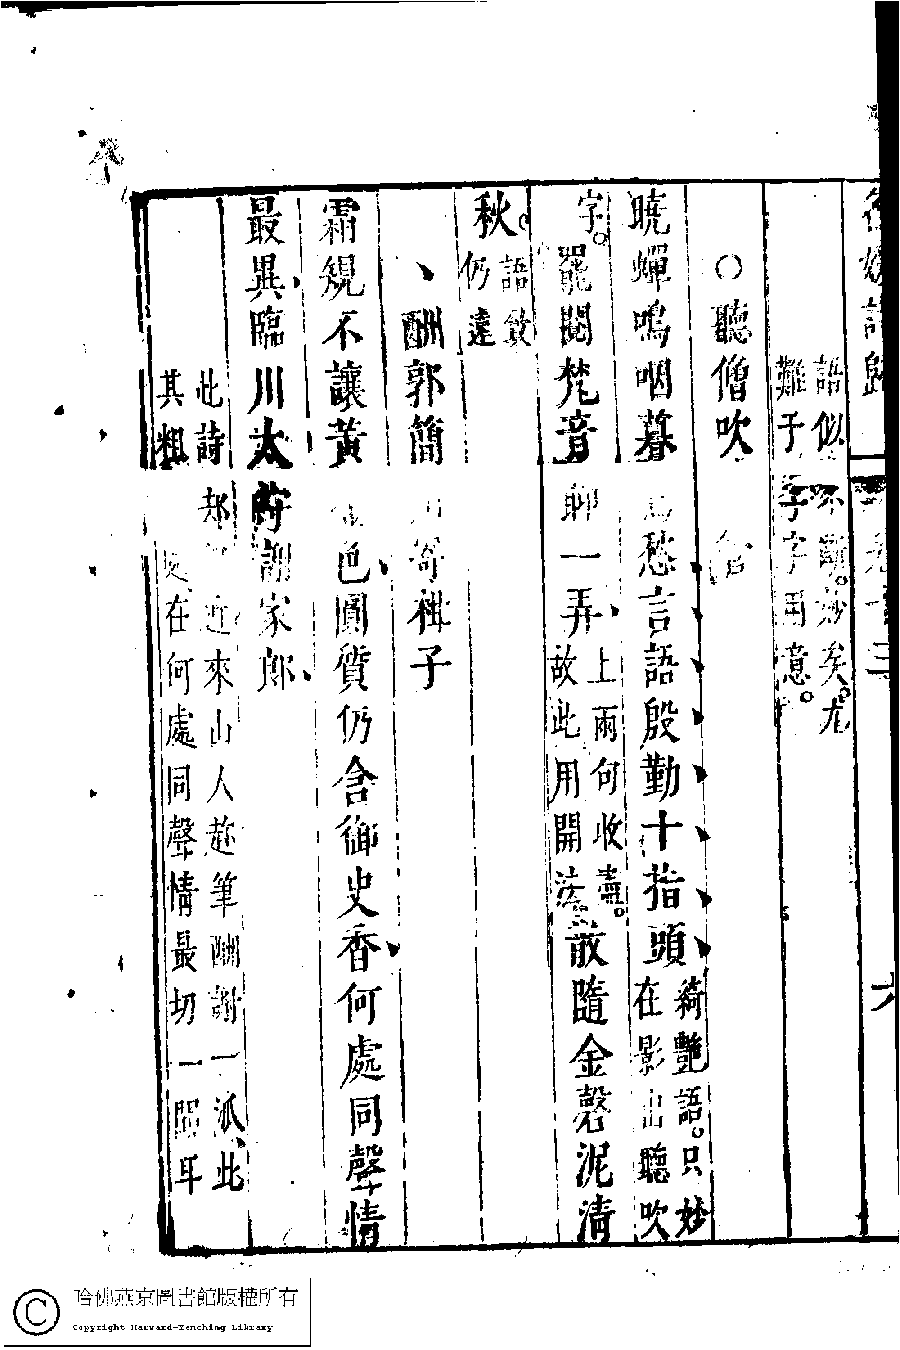 語似不頭妙矣。尤
難于子字用意。
○聽僧吹
曉蟬鳴咽暮愁言語殷勤十指頭
綺艷語。只妙
在影出聽吹
字。罷閱梵音聊一弄
上兩何收壽。
故此用開法
散隨金磬泥清
秋。
語致
仍遠
酬郭簡寄柑子
霜規不讓黃色圓質仍含御史香何處同聲情
最異臨川太謝家郎
此詩却近來山人趁筆酬謝一派此
其粗在何處同聲情最切一聯耳
哈佛燕京圖書館版權所有
Copyright Harvard-Yenching Library